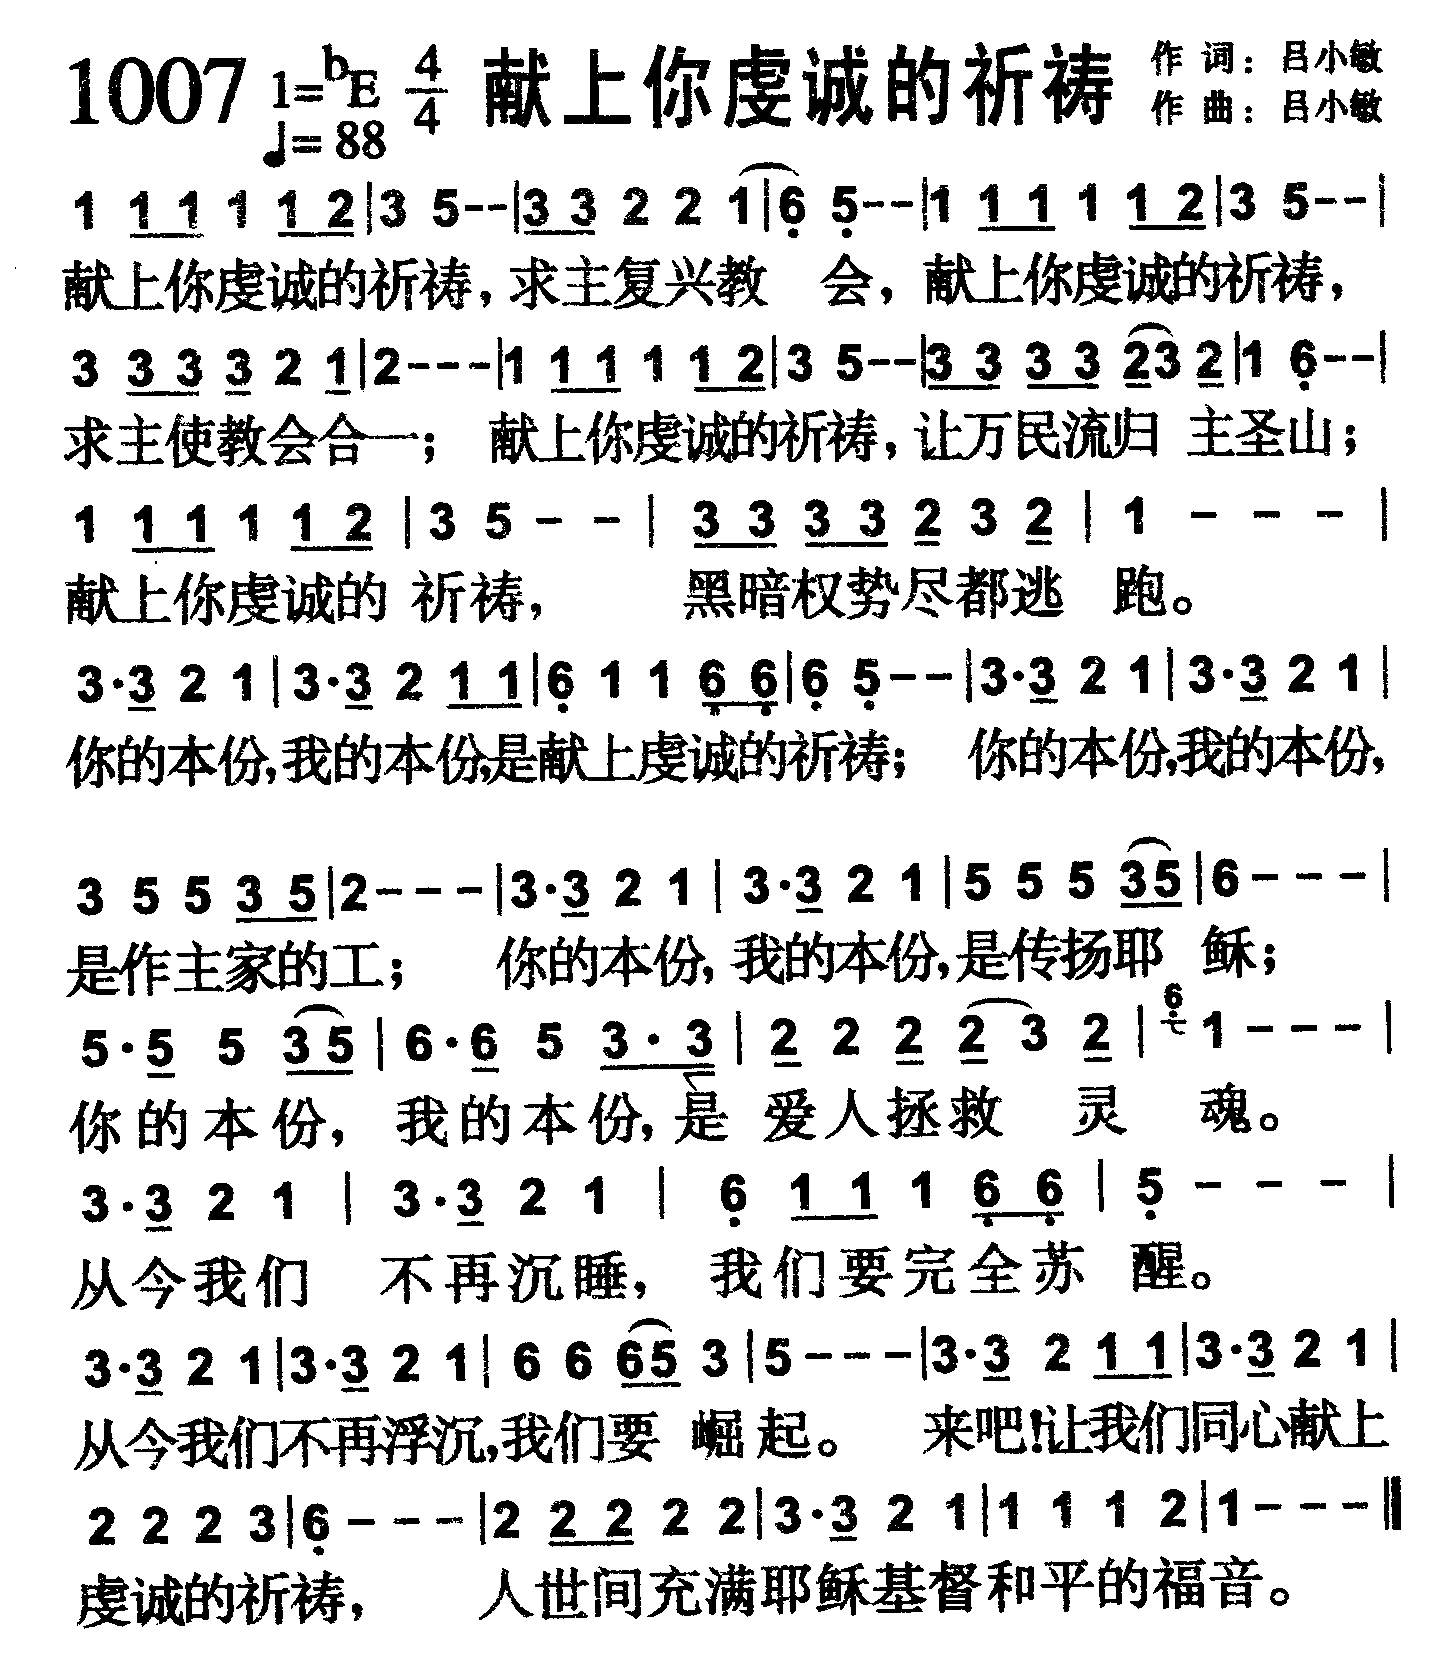 1007 1=bE 4/4 献上你虔诚的祈祷 作词：吕小敏
♩=88 作曲：吕小敏
1 1 1 1 1 2|3 5--|3 3 2 2 1|6 5--|1 1 1 1 1 2|3 5--|
献上你虔诚的祈祷，求主复兴教 会，献上你虔诚的祈祷，
3 3 3 3 2 1|2---|1 1 1 1 1 2|3 5--|3 3 3 3 2 3 2|1 6--|
求主使教会合一；献上你虔诚的祈祷，让万民流归 主圣山；
1 1 1 1 1 2|3 5 - -|3 3 3 3 2 3 2|1 - - -|
献上你虔诚的 祈祷， 黑暗权势尽都逃 跑。
3·3 2 1|3·3 2 1 1|6 1 1 6 6|6 5--|3·3 2 1|3·3 2 1|
你的本份，我的本份，是献上虔诚的祈祷； 你的本份，我的本份，
3 5 5 3 5|2---|3·3 2 1|3·3 2 1|5 5 5 3 5|6---|
是作主家的工； 你的本份，我的本份，是传扬耶 稣；
5·5 5 3 5|6·6 5 3·3|2 2 2 2 3 2|6 1---|
你的本份， 我的本份，是 爱人拯救 灵 魂。
3·3 2 1|3·3 2 1|6 1 1 1 6 6|5 - - -|
从今我们 不再沉睡， 我们要完全苏 醒。
3·3 2 1|3·3 2 1|6 6 6 5 3|5---|3·3 2 1 1|3·3 2 1|
从今我们不再浮沉，我们要 崛起。 来吧！让我们同心献上
2 2 2 3|6---|2 2 2 2 2|3·3 2 1|1 1 1 2|1---‖
虔诚的祈祷， 人世间充满耶稣基督和平的福音。